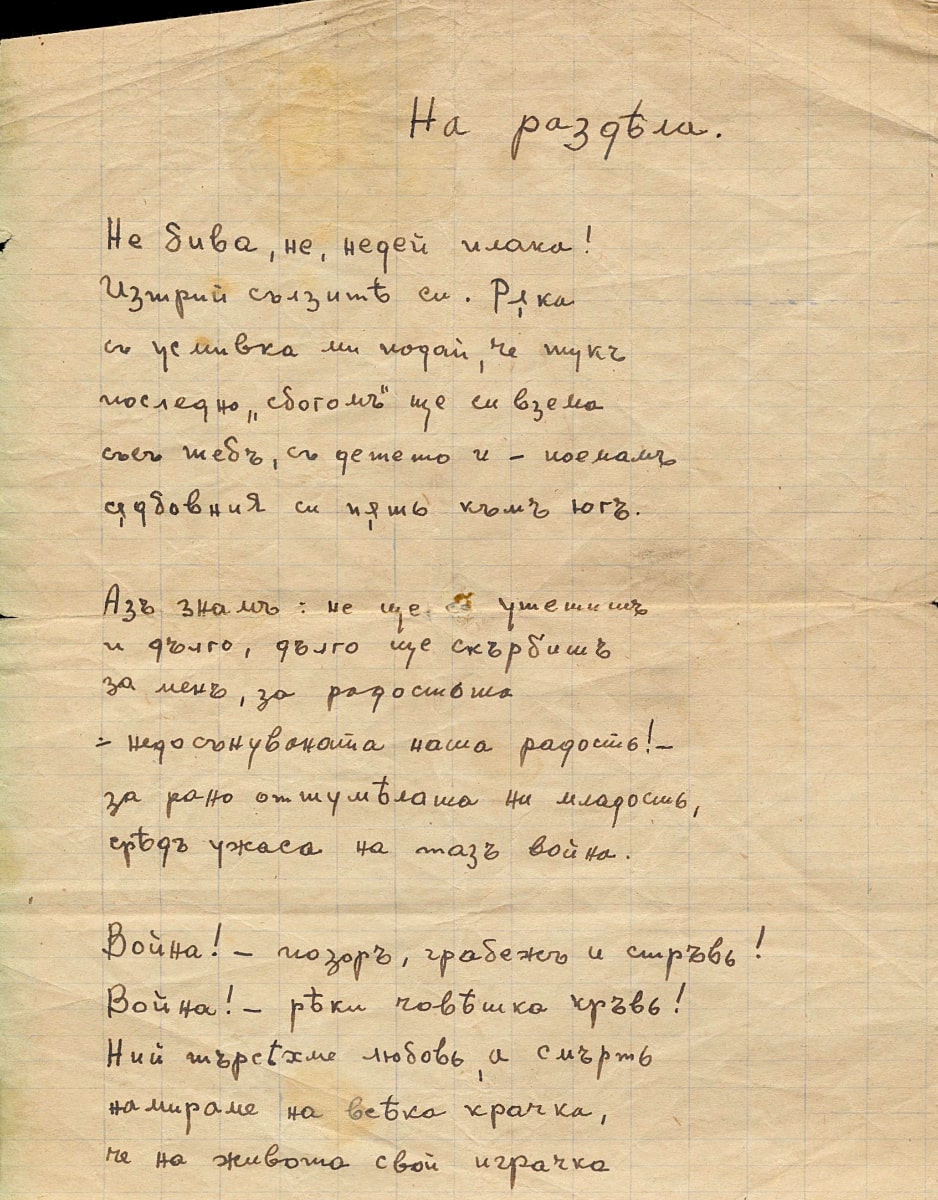 На раздѣла.
Не бива, не, недей плака!
Изтрий сълзитѣ си. Рѫка
съ усмивка ми подай, че тукъ
последно „сбогомъ" ще си взема
съсъ тебъ, съ детето и – поемамъ
сѫдбовния си пѫть къмъ югъ.
Азъ знамъ: не ще утешишъ
и дълго, дълго ще скърбишъ
за менъ, за радостьта
– недосънуваната наша радость! –
за рано отшумѣлата ни младость,
срѣдъ ужаса на тазъ война.
Война! – позоръ, грабежъ и стръвь!
Война! – рѣки човѣшка кръвь!
Ний търсѣхме любовь, а смърть
намираме на всѣка крачка,
че на живота свой играчка